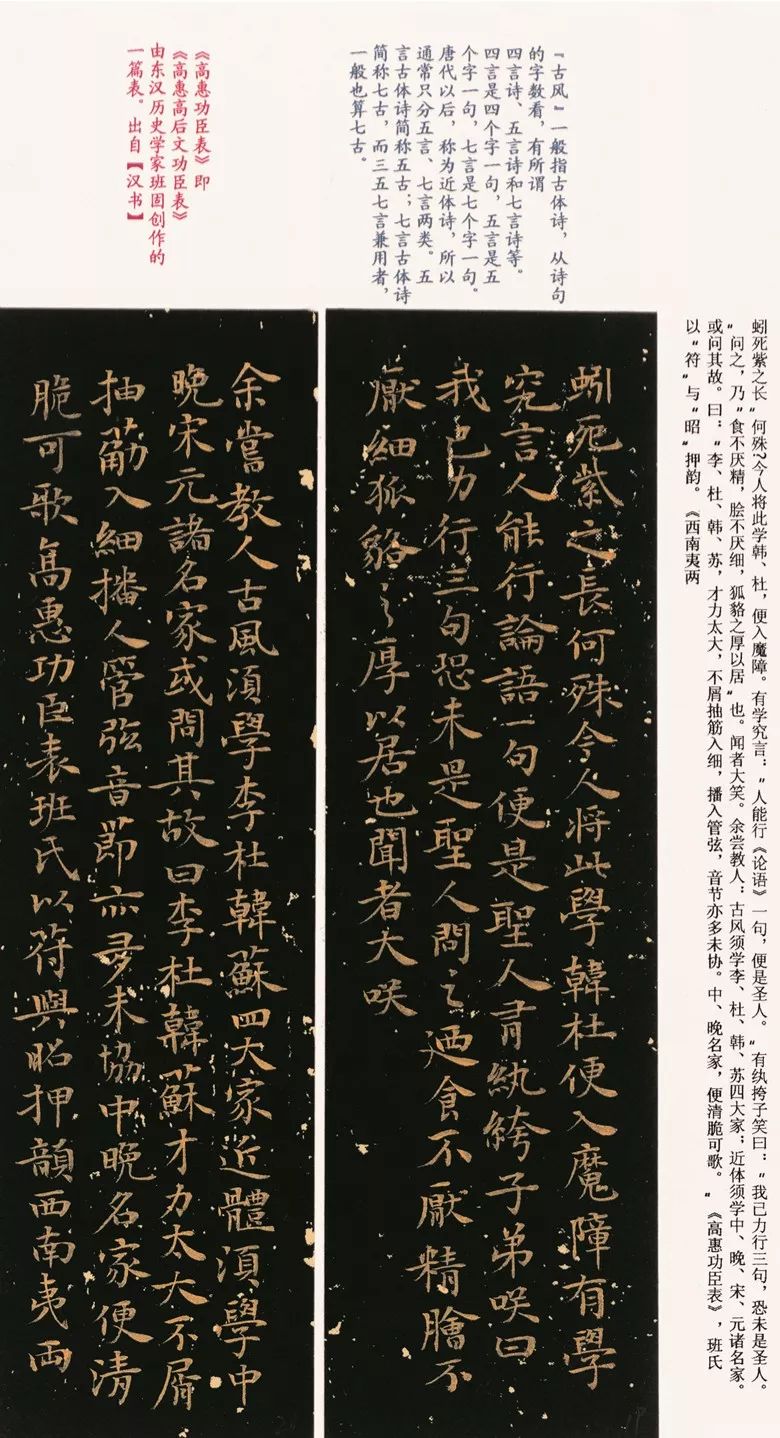 蚓死紫之长"何殊?今人将此学韩、杜，便入魔障。有学究言："人能行《论语》一句，便是圣人。"有纨挎子笑曰："我已力行三句，恐未是圣人。
"问之，乃"食不厌精，脍不厌细，狐貉之厚以居"也。闻者大笑。余尝教人：古风须学李、杜、韩、苏四大家；近体须学中、晚、宋、元诸名家。
或问其故。曰："李、杜、韩、苏，才力太大，不屑抽筋入细，播入管弦，音节亦多未协。中、晚名家，便清脆可歌。"《高惠功臣表》，班氏
以"符"与"昭"押韵。《西南夷两
『古风』一般指古体诗，从诗句
的字数看，有所谓
四言诗、五言诗和七言诗等。
四言是四个字一句，五言是五
个字一句，七言是七个字一句。
唐代以后，称为近体诗，所以
通常只分五言、七言两类。五
言古体诗简称五古；七言古体诗
简称七古，而三五七言兼用者，
一般也算七古。
《高惠功臣表》即
《高惠高后文功臣表》
由东汉历史学家班固创作的
一篇表。出自【汉书】
蚓死紫之長何殊今人将此學韓杜便入魔障有學
究言人能行論語一句便是聖人有紈絝子弟咲曰
我已力行三句恐未是聖人問之迺食不厭精膾不
厭細狐貉之厚以居也聞者大咲
余嘗教人古風須學李杜韓蘇四大家近體須學中
晚宋元諸名家或問其故曰李杜韓蘇才力太大不屑
抽筋入細播入管弦音節亦多未協中晚名家便清
脆可歌高惠功臣表班氏以符與昭押韻西南夷两